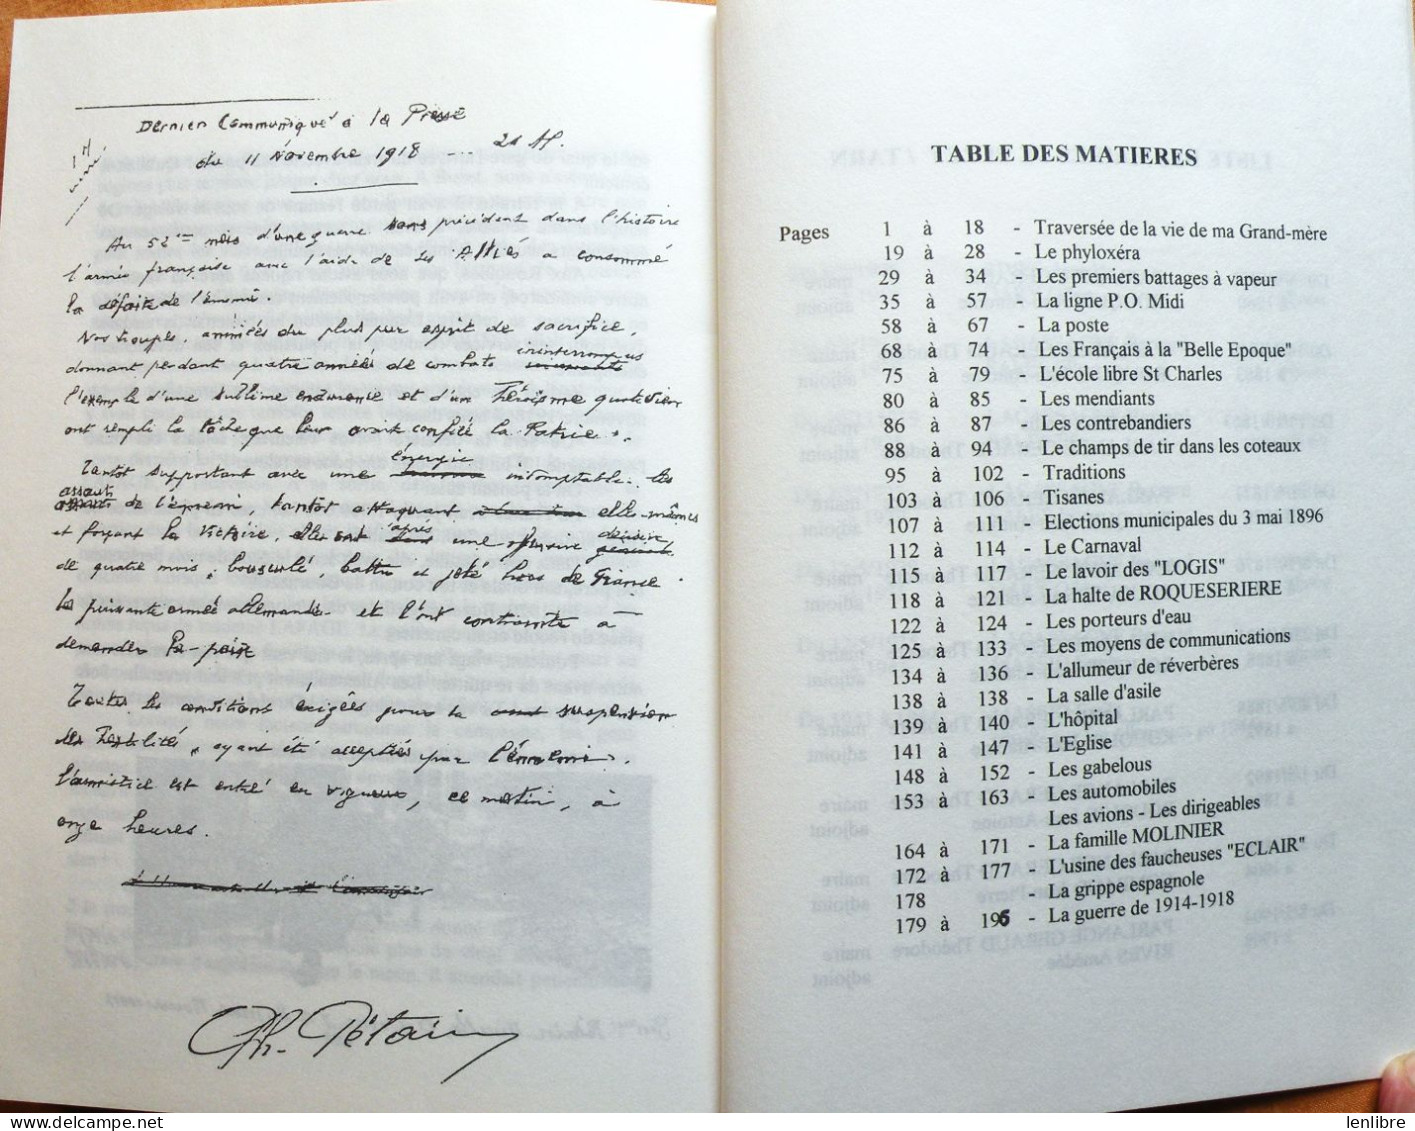 Dernier Communiqué à la Presse
du 11 Novembre 1918 -.. 21 H.
Au 52ème mois d'une guerre sans précédent dans l'histoire
l'armée française avec l'aide de ses Alliés a consommé
la défaite de l'ennemi.
Nos troupes, animées du plus pur esprit de sacrifice,
donnant pendant quatre années de combats ininterrompus
l'exemple d'une sublime endurance et d'un héroïsme quotidien
ont rempli la tâche que leur avait confié la Patrie.
Tantôt supportant avec une énergie indomptable les
assauts de l'ennemi, tantôt attaquant elles-mêmes
et forçant la victoire, elles ont après une offensive décisive
de quatre mois, bousculé, battu et jeté hors de France
la puissante armée allemande et l'ont contrainte à
demander la paix
Toutes les conditions exigées pour la suspension
des hostilités, ayant été acceptées par l'ennemi.
l'armistice est entré en vigueur, ce matin, à
onze heures.
Ph. Pétain
TABLE DES MATIERES
Pages 1 à 18 - Traversée de la vie de ma Grand-mère
19 à 28 - Le phylloxéra
29 à 34 - Les premiers battages à vapeur
35 à 57 - La ligne P.O. Midi
58 à 67 - La poste
68 à 74 - Les Français à la "Belle Epoque"
75 à 79 - L'école libre St Charles
80 à 85 - Les mendiants
86 à 87 - Les contrebandiers
88 à 94 - Le champs de tir dans les coteaux
95 à 102 - Traditions
103 à 106 - Tisanes
107 à 111 - Elections municipales du 3 mai 1896
112 à 114 - Le Carnaval
115 à 117 - Le lavoir des "LOGIS"
118 à 121 - La halte de ROQUESERIERE
122 à 124 - Les porteurs d'eau
125 à 133 - Les moyens de communications
134 à 136 - L'allumeur de réverbères
138 à 138 - La salle d'asile
139 à 140 - L'hôpital
141 à 147 - L'Eglise
148 à 152 - Les gabelous
153 à 163 - Les automobiles
Les avions - Les dirigeables
164 à 171 - La famille MOLINIER
172 à 177 - L'usine des faucheuses "ECLAIR"
178 - La grippe espagnole
179 à 196 - La guerre de 1914-1918
lenlibre